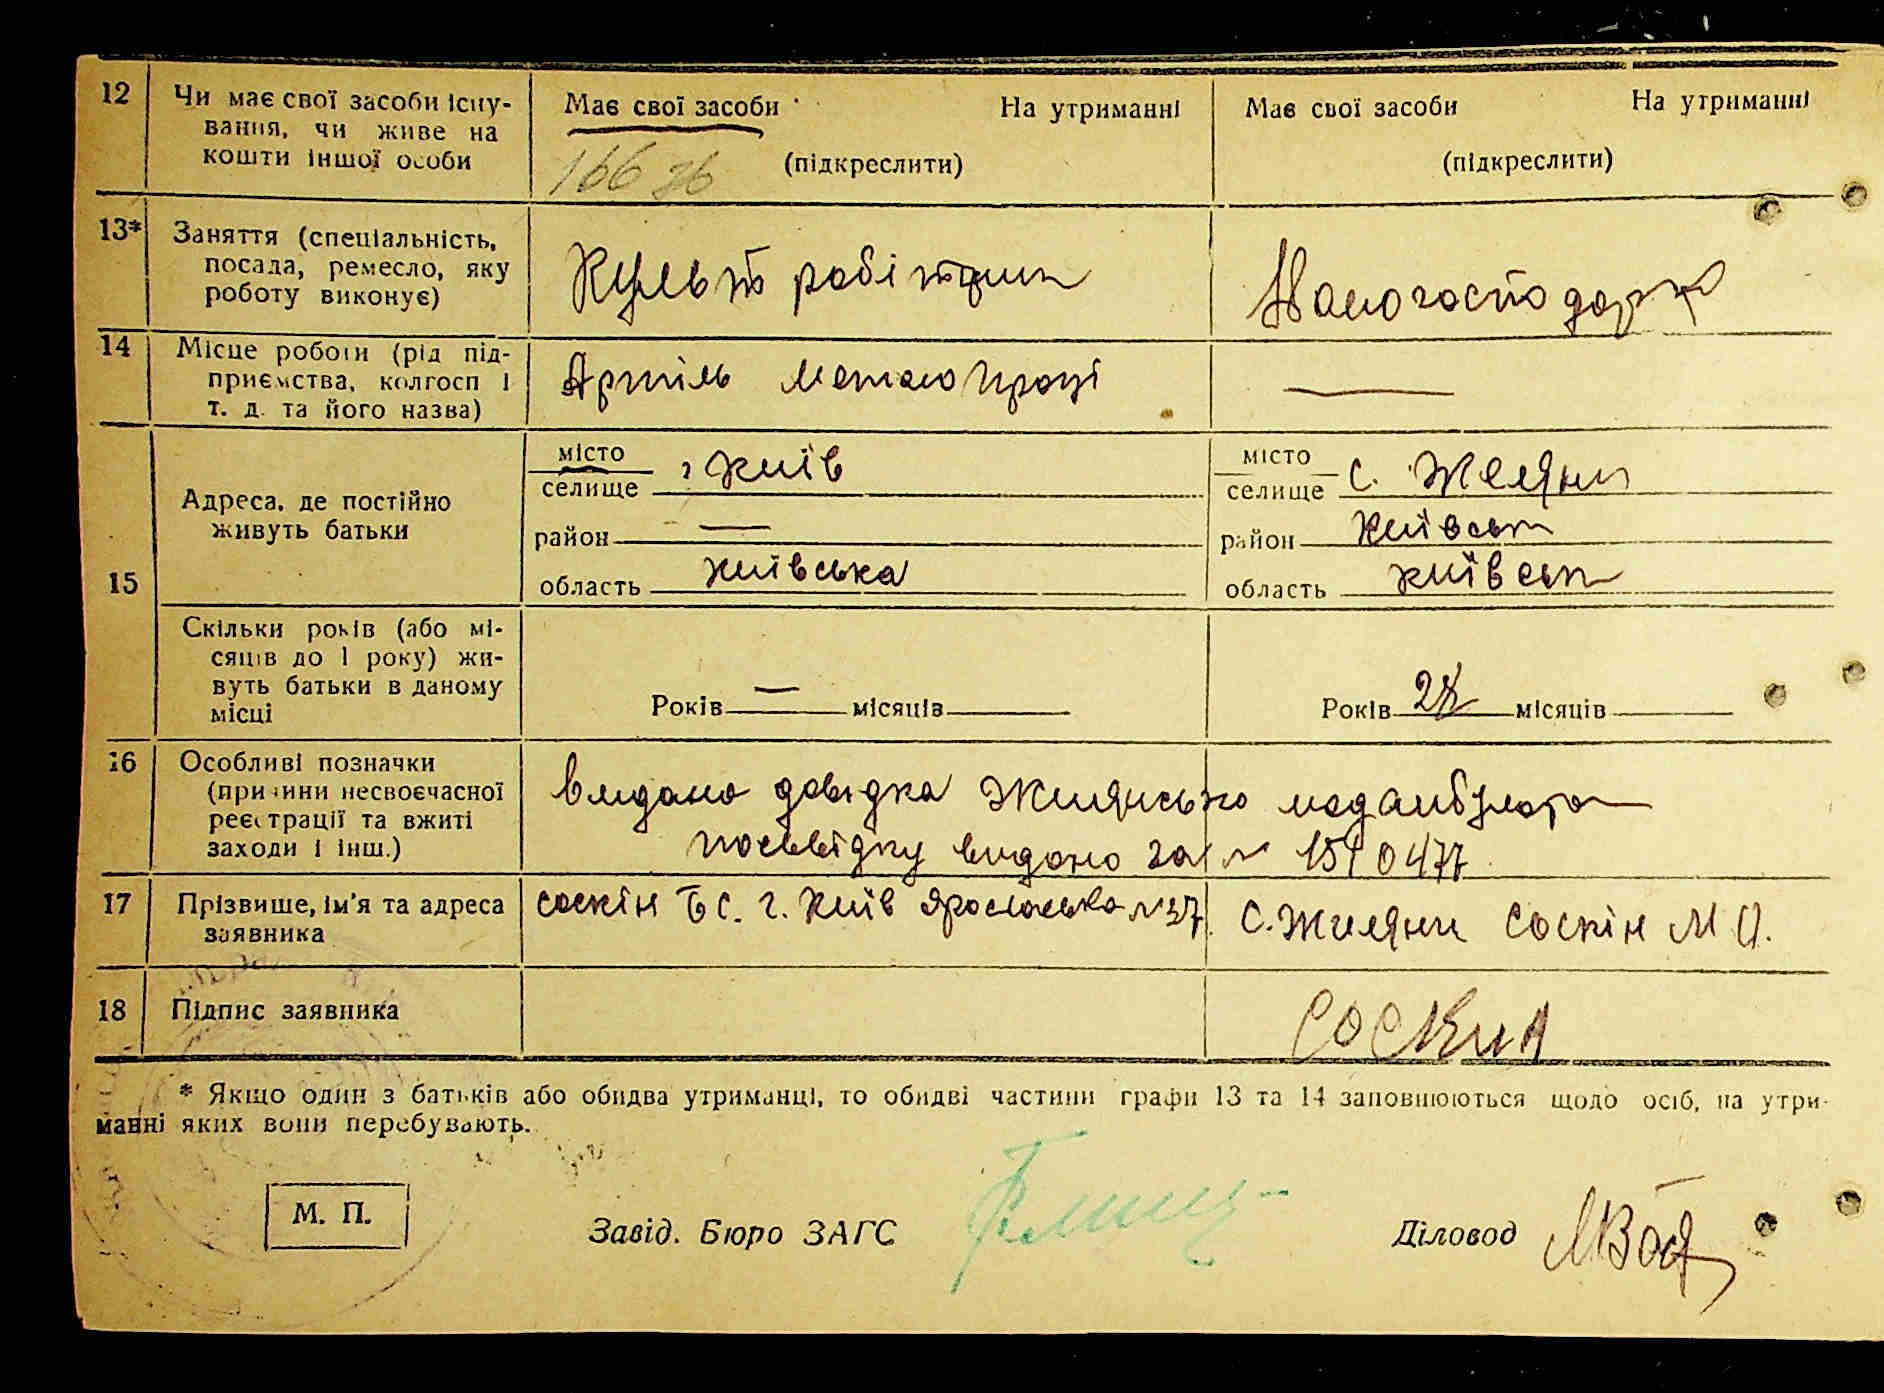 12 Чи має свої засоби існу-
вання, чи живе на
кошти іншої особи
Має свої засоби На утриманні
(підкреслити)
166 зб
Має свої засоби На утриманні
(підкреслити)
13* Заняття (спеціальність,
посада, ремесло, яку
роботу виконує)
Культ робітник
Домогосподарка
14 Місце роботи (рід під-
приємства, колгосп і
т. д. та його назва)
Артіль
—
15 Адреса, де постійно
живуть батьки
місто
селище г Київ
район —
область Київська
місто
селище с. Жиляни
район Київськ
область Київськ
Скільки років (або мі-
сяців до 1 року) жи-
вуть батьки в даному
місці
Років — місяців
Років місяців
16 Особливі позначки
(причини несвоєчасної
реєстрації та вжиті
заходи і інш.)
видана довідка Жилянсько медамбулатор
посвідку видано за № 1510477
17 Прізвище, ім'я та адреса
заявника
Соскін Б С. г. Київ Ярославська №37.
С. Жиляни Соскін М О.
18 Підпис заявника
Соскин
* Якщо один з батьків або обидва утриманці, то обидві частини графи 13 та 14 заповнюються щодо осіб, на утри-
манні яких вони перебувають.
М. П.
Завід. Бюро ЗАГС
Діловод